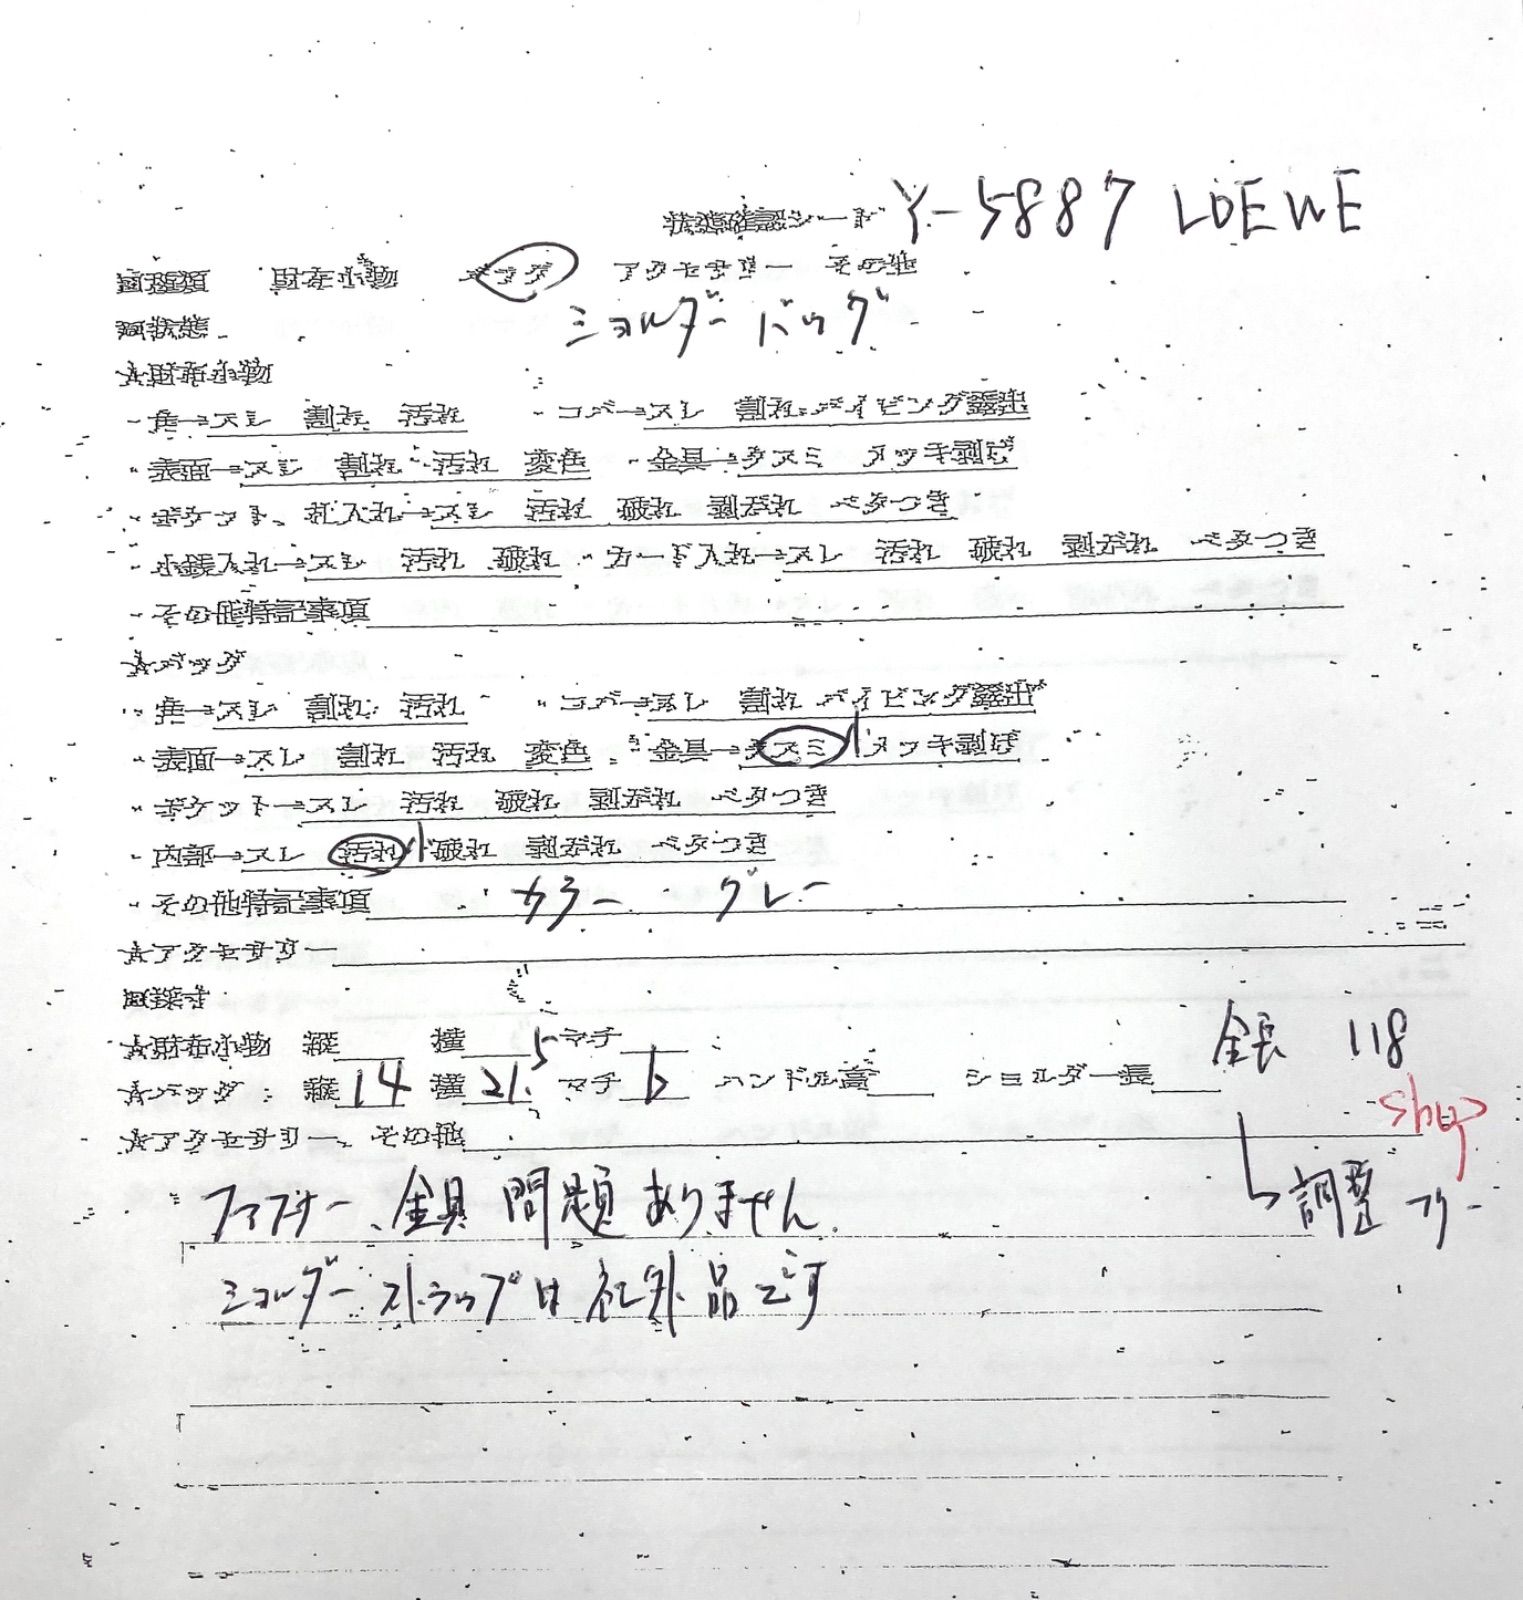 状態確認シート Y-5887 LOEWE
■種類 財布小物 バッグ アクセサリー その他
■状態 ショルダーバッグ
★財布小物
・角→スレ 割れ 汚れ ・コバ→スレ 割れ パイピング露出
・表面→スレ 割れ 汚れ 変色 ・金具→クスミ メッキ剥げ
・ポケット、札入れ→スレ 汚れ 破れ 剥がれ ベタつき
・小銭入れ→スレ 汚れ 破れ ・カード入れ→スレ 汚れ 破れ 剥がれ ベタつき
・その他特記事項
★バッグ
・角→スレ 割れ 汚れ ・コバ→スレ 割れ パイピング露出
・表面→スレ 割れ 汚れ 変色 ・金具→クスミ 小 メッキ剥げ
・ポケット→スレ 汚れ 破れ 剥がれ ベタつき
・内部→スレ 汚れ 小 破れ 剥がれ ベタつき
・その他特記事項 カラー グレー
★アクセサリー
■採寸
★財布小物 縦 横 マチ 全長 118
★バッグ 縦14 横21.5 マチ6 ハンドル高 ショルダー長
shop
★アクセサリー、その他
ファスナー、金具問題ありません 調整フリー
ショルダーストラップは社外品です